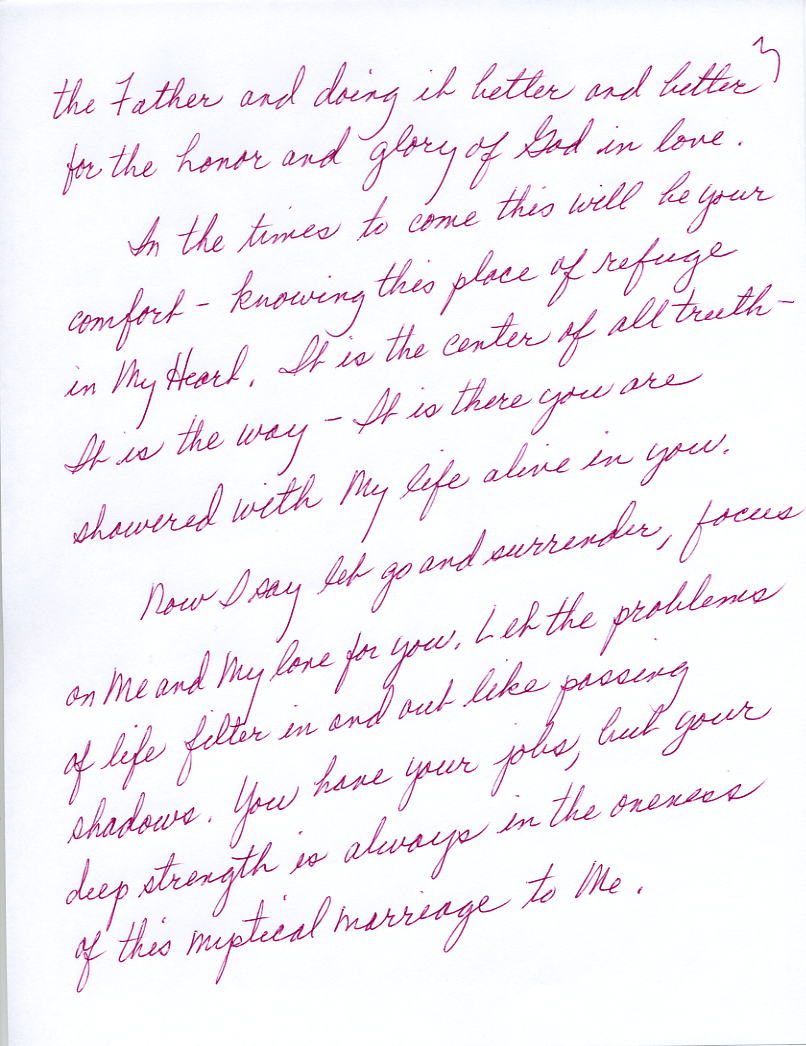 3
the Father and doing it better and better
for the honor and glory of God in love.
In the times to come this will be your
comfort - knowing this place of refuge
in My Heart. It is the center of all truth -
It is the way - It is there you are
showered with My life alive in you.
Now I say let go and surrender, focus
on Me and My love for you. Let the problems
of life filter in and out like passing
shadows. You have your jobs, but your
deep strength is always in the oneness
of this mystical marriage to Me.